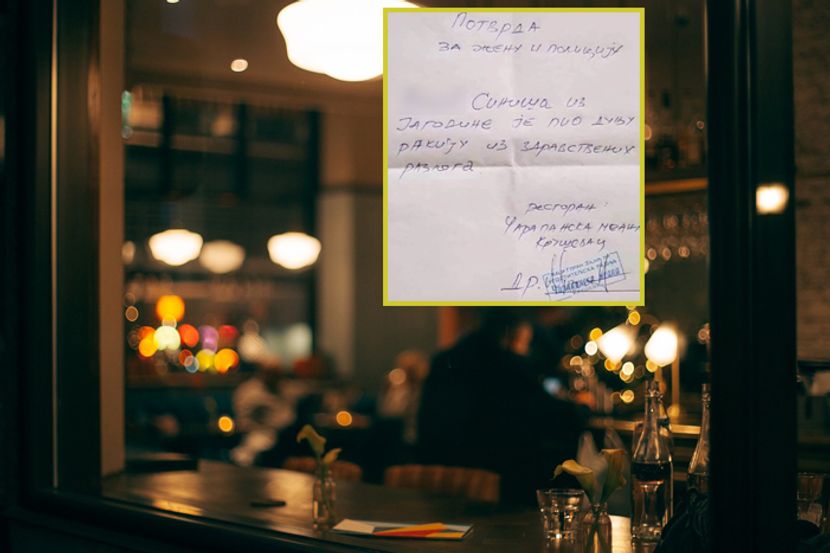 Потврда
за жену и полицију
Синиша из
Јагодине је пио дуњу
ракију из здравствених
разлога.
ресторан:
Чарапанска
Крушевац
Др.